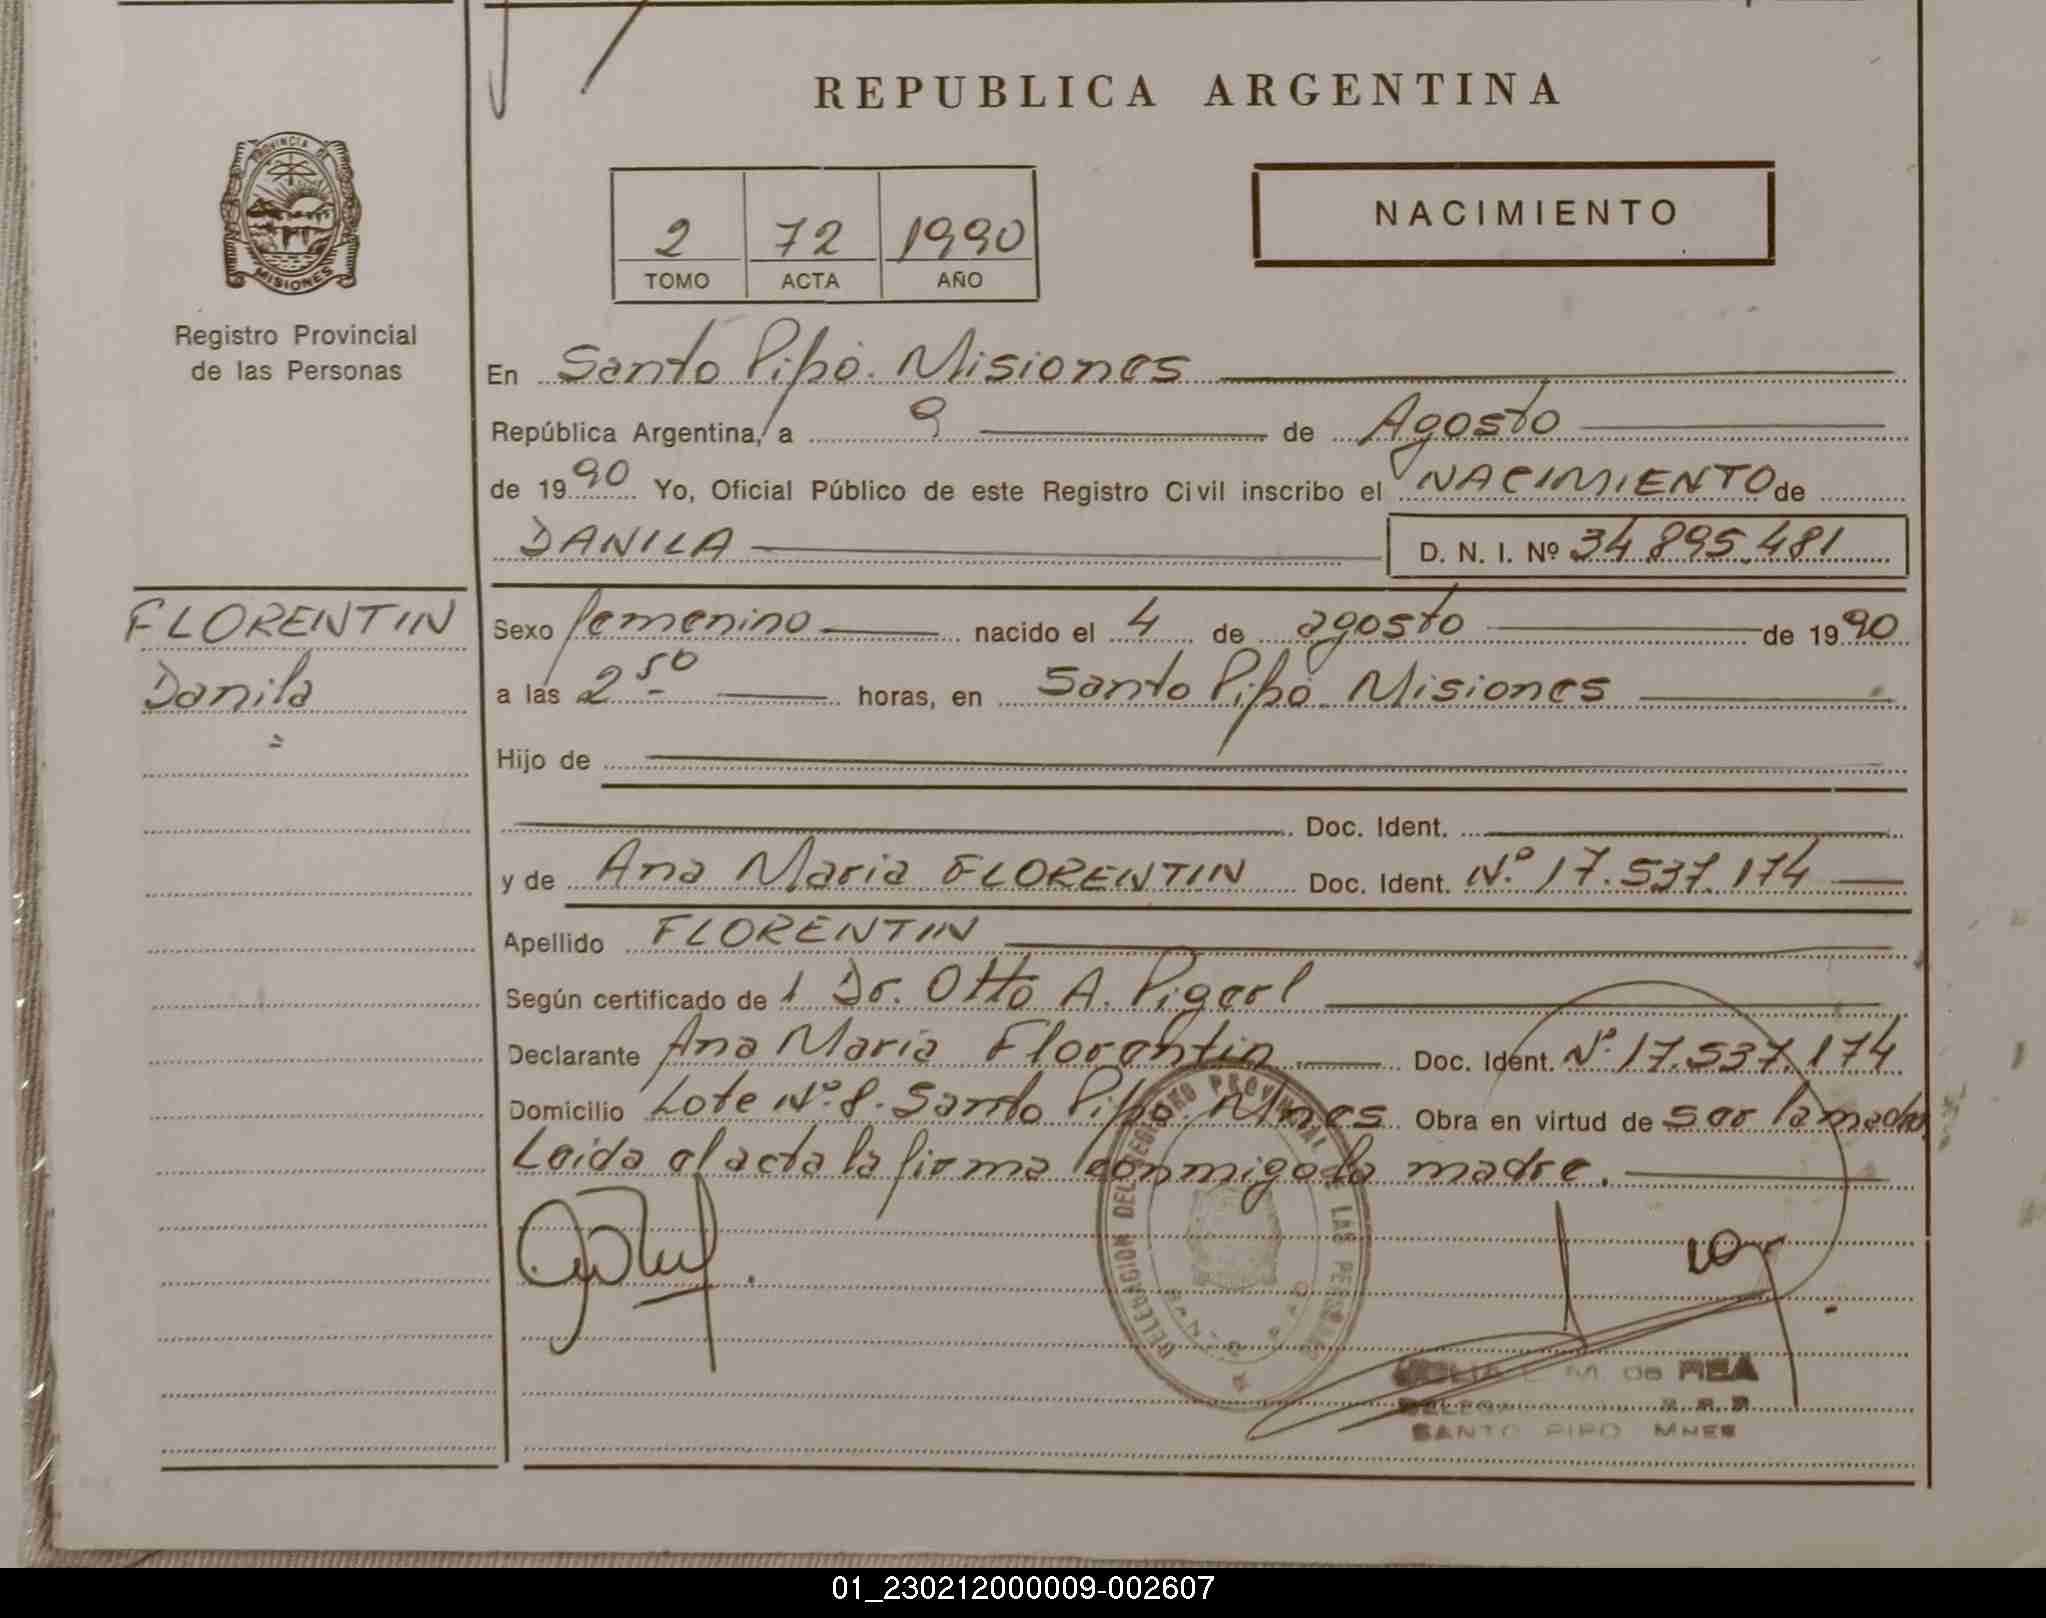 REPUBLICA ARGENTINA
PROVINCIA DE
MISIONES
Registro Provincial
de las Personas
2 72 1990
TOMO ACTA AÑO
NACIMIENTO
En Santo Pipó. Misiones
República Argentina, a 9 de Agosto
de 1990 Yo, Oficial Público de este Registro Civil inscribo el NACIMIENTO de
DANILA D. N. I. Nº 34.895.481
FLORENTIN
Danila
Sexo femenino nacido el 4 de agosto de 1990
a las 2 50 horas, en Santo Pipó. Misiones
Hijo de
Doc. Ident.
y de Ana Maria FLORENTIN Doc. Ident. Nº 17.537.174
Apellido FLORENTIN
Según certificado de 1 Dr. Otto A. Pigerl
Declarante Ana Maria Florentin Doc. Ident. Nº 17.537.174
Domicilio Lote Nº 8. Santo Pipó. Mnes Obra en virtud de ser la madre
Leida el acta la firma conmigo la madre.
DELEGACION DEL REGISTRO PROVINCIAL DE LAS PERSONAS
M. DE REA
SANTO PIPO MNES
01_230212000009-002607